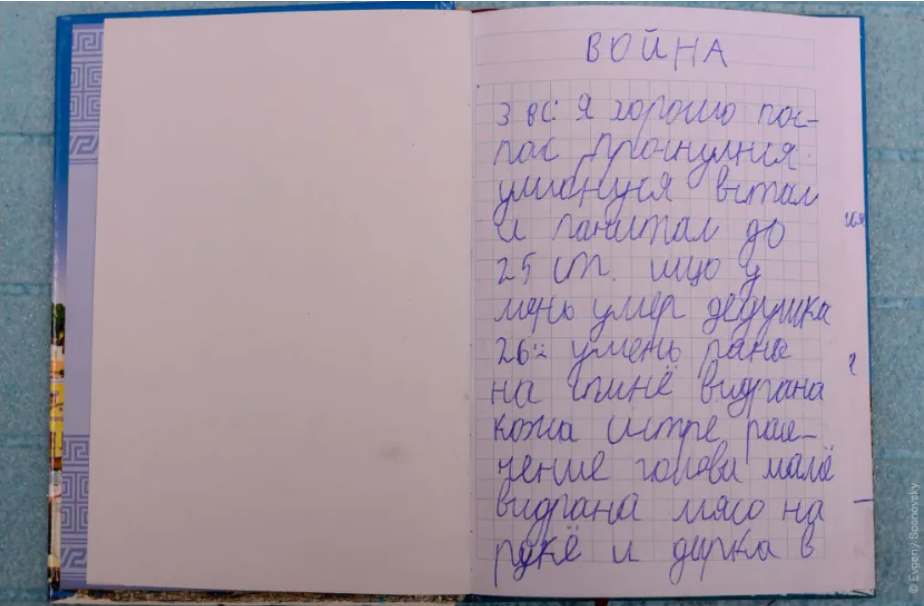 ВОЙНА
3 вс: Я хорошо пос-
пас проснулися
умионуся встал
и панитал до
25 стп. ищо у
мень умер дедушка
26:: умень рана
на спинё видрана
кожа систре рассе-
чение голови мамё
видрана мясо на
рукё и дирка в
© Evgeny Sosnovsky